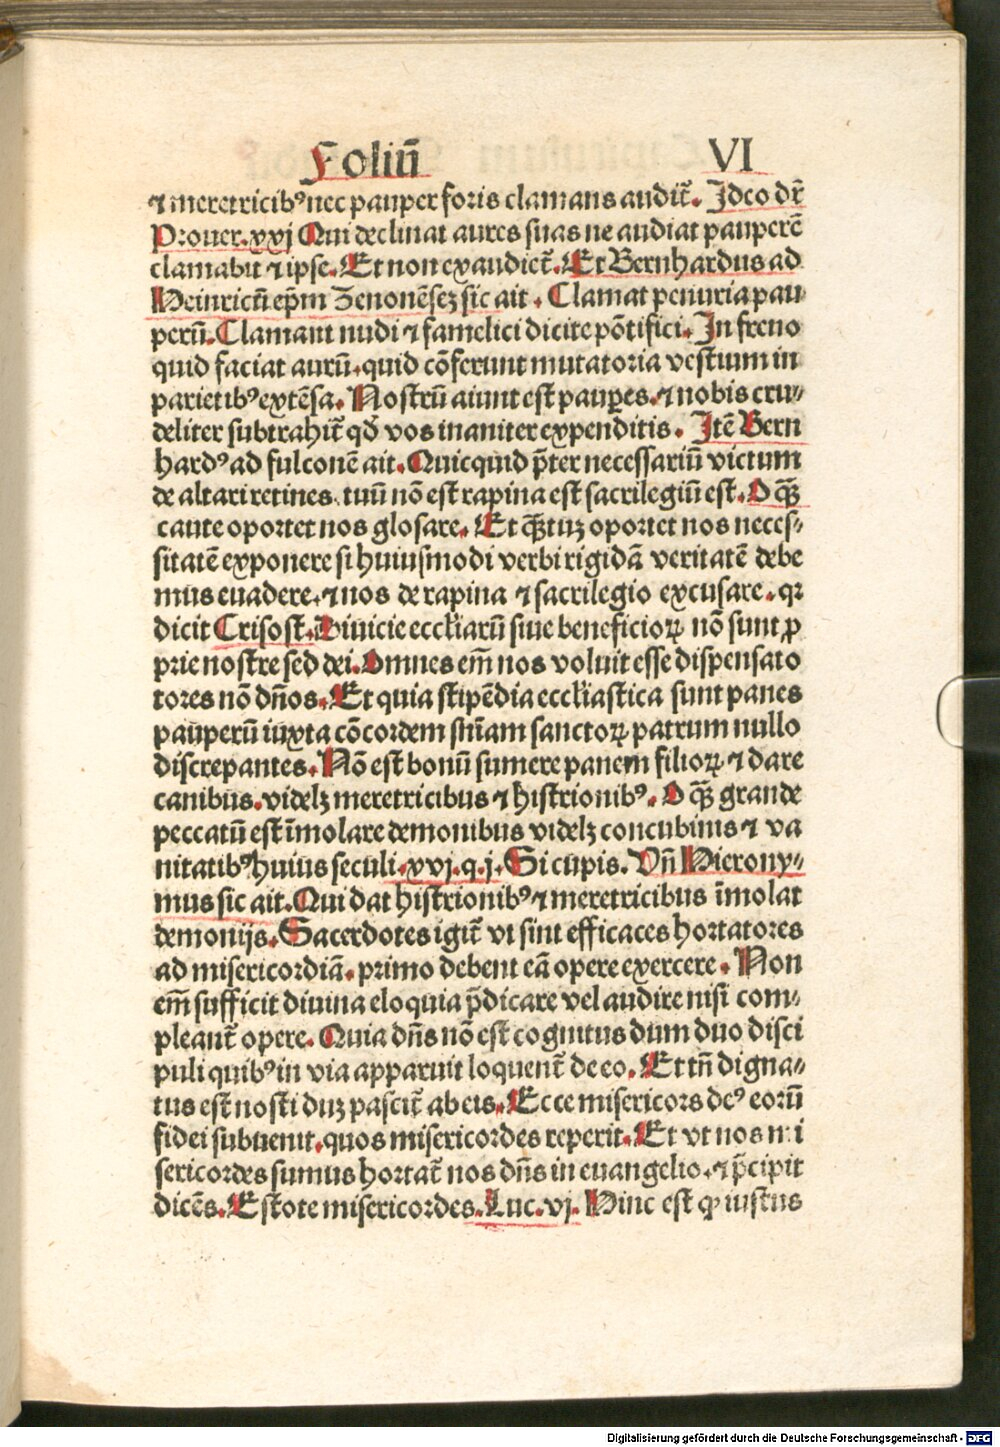 Foliū VI
⁊ meretricibꝰ nec pauper foris clamans audit̄. Ideo dr̄
Prouer. xxj Qui declinat aures suas ne audiat pauperē
clamabit ⁊ ipse. Et non exaudiet̄. Et Bernhardus ad
Heinricū ep̄m Zenonēsez sic ait. Clamat penuria pau⸗
perū. Clamant nudi ⁊ famelici dicite pōtifici. In freno
quid faciat aurū. quid cōferunt mutatoria vestium in
parietibꝰ extēsa. Nostrū aiunt est pauꝑes. ⁊ nobis cru⸗
deliter subtrahit̄ qd̄ vos inaniter expenditis. Itē Bern
hardꝰ ad fulconē ait. Quicquid p̄ter necessariū victum
de altari retines. tuū nō est rapina est sacrilegiū est. O qȝ̄
caute oportet nos glosare. Et qȝ̄tuz oportet nos neces⸗
sitatē exponere si huiusmodi verbi rigidā veritatē debe
mus euadere. ⁊ nos de rapina ⁊ sacrilegio excusare. qꝛ
dicit Crisost. Diuicie eccl̄iarū siue beneficioꝝ nō sunt ꝓ
prie nostre sed dei. Omnes em̄ nos voluit esse dispensato
tores nō dn̄os. Et quia stipēdia eccl̄iastica sunt panes
pauperū iuxta cōcordem sn̄iam sanctoꝝ patrum nullo
discrepantes. Nō est bonū sumere panem filioꝝ ⁊ dare
canibus. videlȝ meretricibus ⁊ histrionibꝰ. O qȝ̄ grande
peccatū est īmolare demonibus videlȝ concubinis ⁊ va
nitatibꝰ huius seculi. xvj. q. j. Si cupis. Vn̄ Hierony⸗
mus sic ait. Qui dat histrionibꝰ ⁊ meretricibus īmolat
demonijs. Sacerdotes igit̄ vt sint efficaces hortatores
ad misericordiā. primo debent eā opere exercere. Non
em̄ sufficit diuina eloquia p̄dicare vel audire nisi com⸗
pleant̄ opere. Quia dn̄s nō est cognitus dum duo disci
puli quibꝰ in via apparuit loquent̄ de eo. Et tn̄ digna⸗
tus est nosti duȝ pascit̄ ab eis. Ecce misericors deꝰ eorū
fidei subuenit. quos misericordes reperit. Et vt nos mi
sericordes sumus hortat̄ nos dn̄s in euangelio. ⁊ p̄cipit
dicēs. Estote misericordes. Luc. vj. Hinc est ꝙ iustus
Digitalisierung gefördert durch die Deutsche Forschungsgemeinschaft - DFG